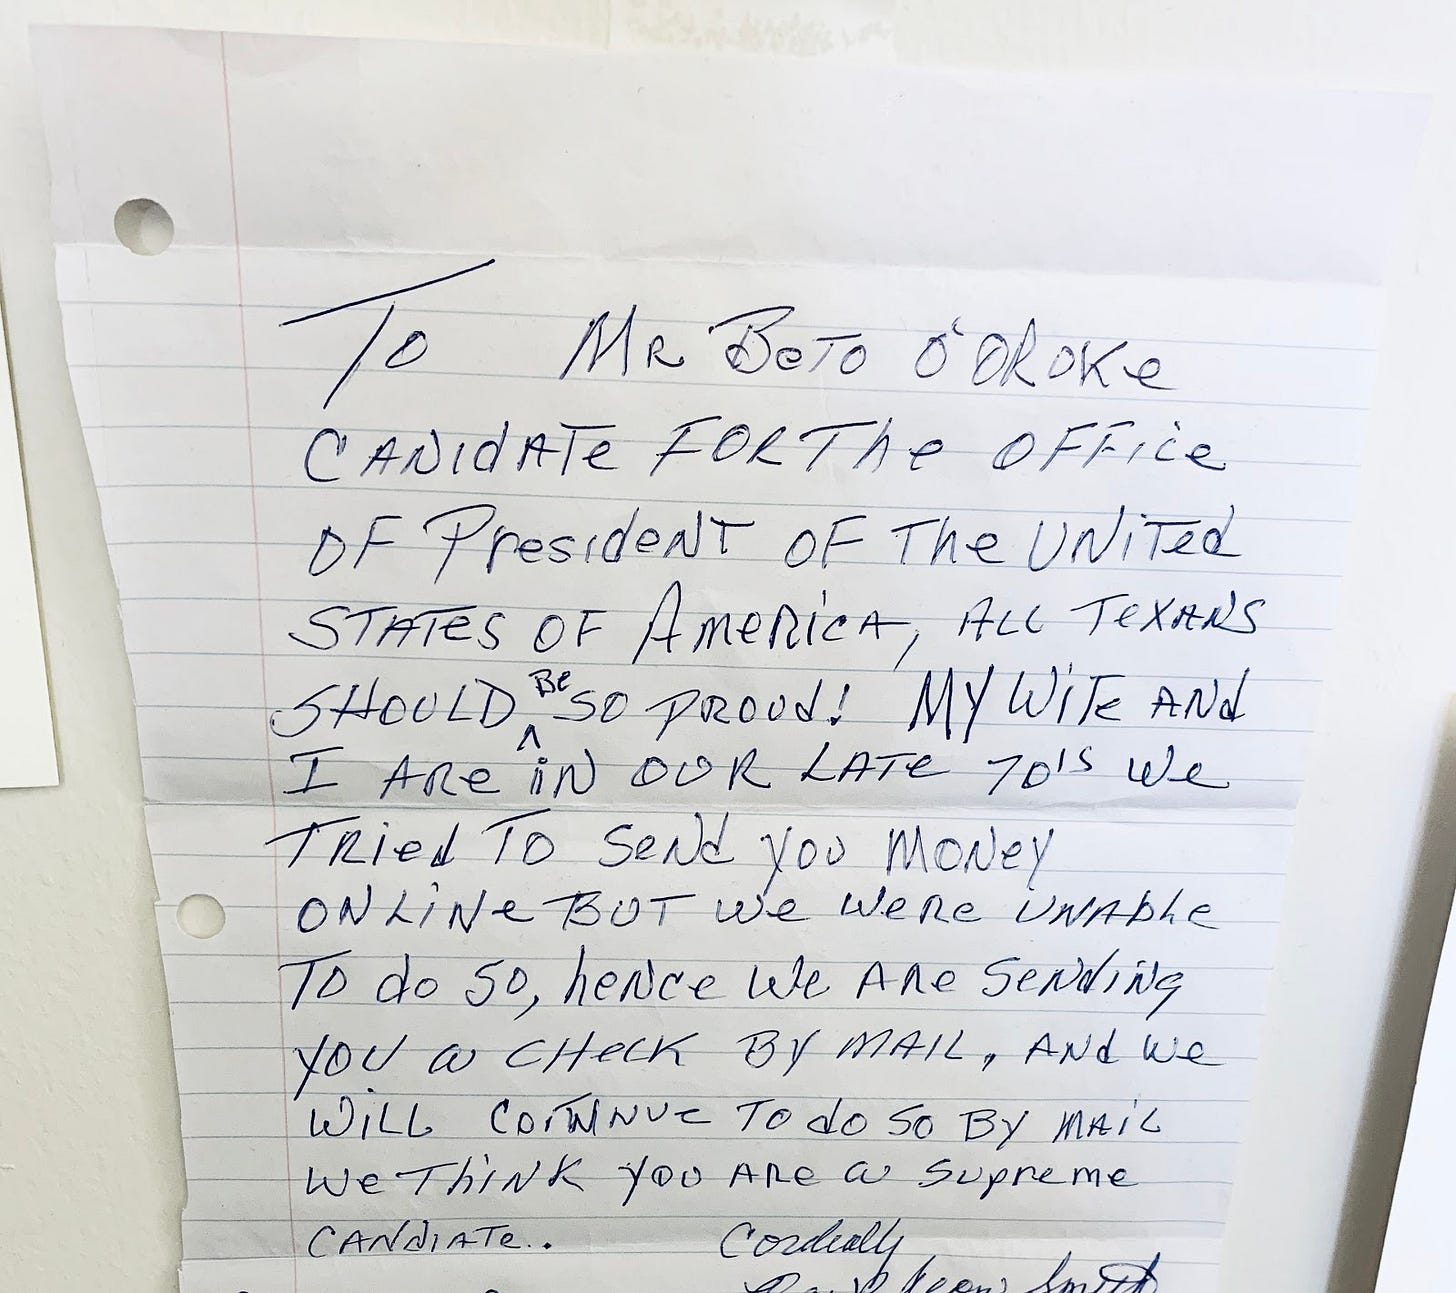 To Mr Beto O'Oroke
Canidate for the office
of President of the United
States of America, all Texans
should be so proud! My wife and
I are in our late 70's we
tried to send you money
online but we were unable
to do so, hence we are sending
you a check by mail, and we
will continue to do so by mail
we think you are a supreme
candiate..
Cordially
Smith